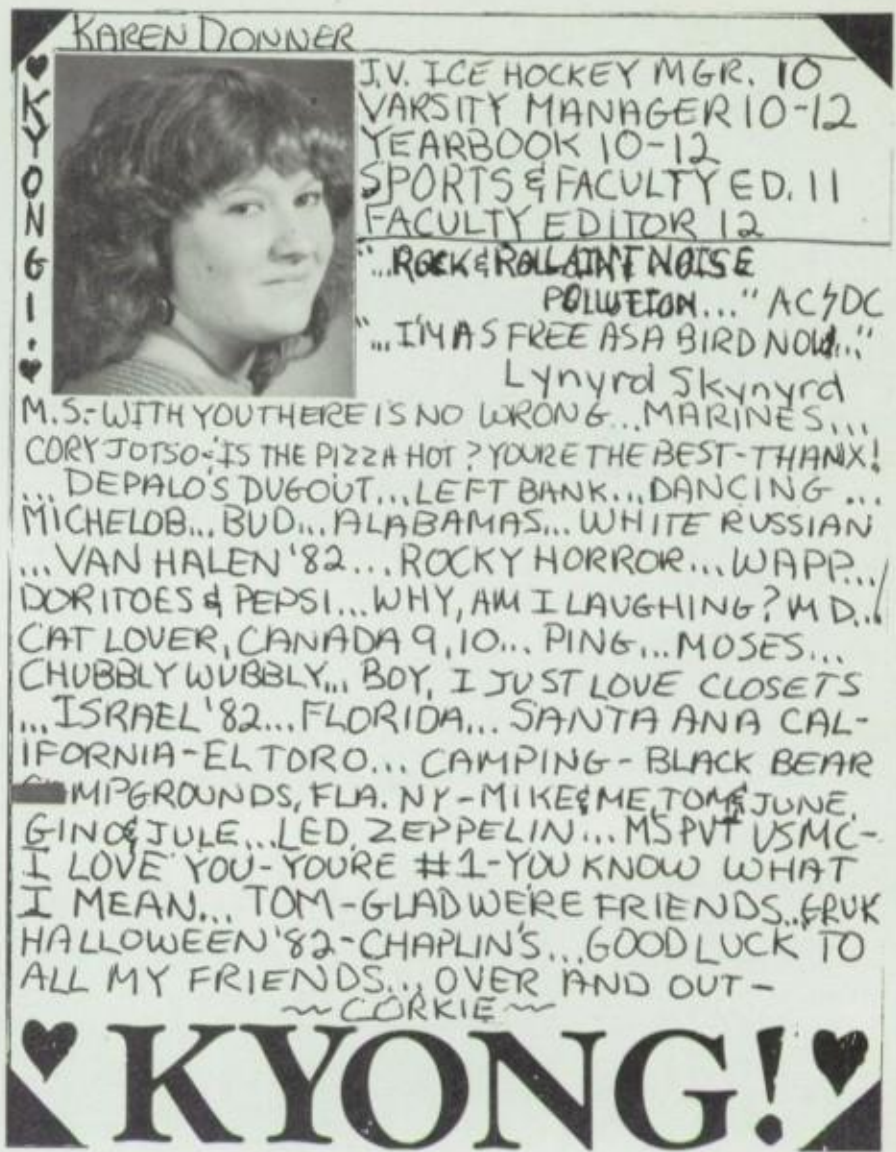 KAREN DONNER
♥KYONG!.♥
J.V. ICE HOCKEY MGR. 10
VARSITY MANAGER 10-12
YEARBOOK 10-12
SPORTS & FACULTY ED. 11
FACULTY EDITOR 12
"...ROCK & ROLL AIN'T NOISE
POLLUTION..." AC⚡DC
"...I'M AS FREE AS A BIRD NOW..."
Lynyrd Skynyrd
M.S.-WITH YOU THERE IS NO WRONG...MARINES...
CORY JOTSO-IS THE PIZZA HOT? YOURE THE BEST-THANX!
...DEPALO'S DUGOUT...LEFT BANK...DANCING...
MICHELOB...BUD...ALABAMAS...WHITE RUSSIAN
...VAN HALEN '82...ROCKY HORROR...WAPP...
DORITOES & PEPSI...WHY, AM I LAUGHING? M D...!
CAT LOVER, CANADA 9,10... PING...MOSES...
CHUBBLY WUBBLY... BOY, I JUST LOVE CLOSETS
...ISRAEL '82...FLORIDA... SANTA ANA CAL-
IFORNIA-EL TORO... CAMPING-BLACK BEAR
MPGROUNDS, FLA. NY-MIKE & ME, TOM & JUNE,
GINO & JULE...LED. ZEPPELIN... MS PVT USMC-
I LOVE YOU-YOURE #1-YOU KNOW WHAT
I MEAN... TOM-GLAD WERE FRIENDS..
HALLOWEEN '82-CHAPLIN'S...GOOD LUCK TO
ALL MY FRIENDS... OVER AND OUT-
~CORKIE~
♥KYONG!♥